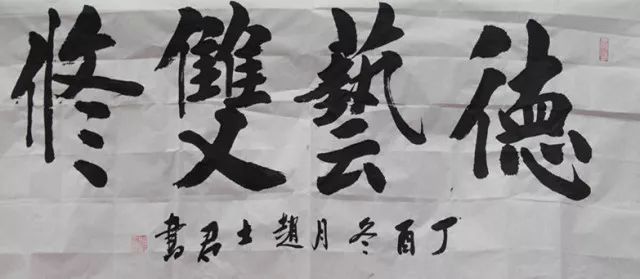 德藝雙修
丁酉冬月趙士君書